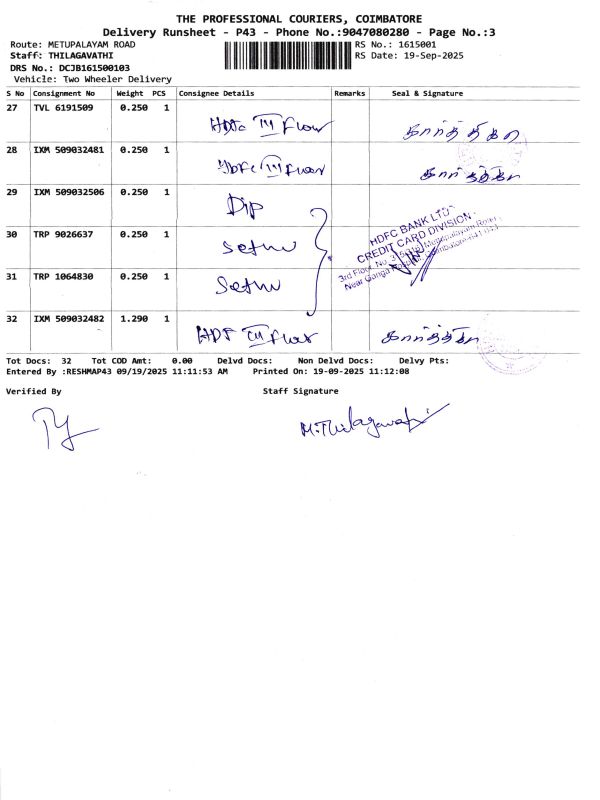 THE PROFESSIONAL COURIERS, COIMBATORE
Delivery Runsheet - P43 - Phone No.:9047080280 - Page No.:3
Route: METUPALAYAM ROAD RS No.: 1615001
Staff: THILAGAVATHI RS Date: 19-Sep-2025
DRS No.: DCJB161500103
Vehicle: Two Wheeler Delivery
S No Consignment No Weight PCS Consignee Details Remarks Seal & Signature
27 TVL 6191509 0.250 1
HDfc III floor கார்த்திகா
28 IXM 509032481 0.250 1
Hdfc III floor கார்த்திகா
29 IXM 509032506 0.250 1
Dip
30 TRP 9026637 0.250 1
Sethu
HDFC BANK LTD
CREDIT CARD DIVISION
3rd Floor, No.
Near Ganga
31 TRP 1064830 0.250 1
Sethu
32 IXM 509032482 1.290 1
HDF III floor கார்த்திகா
Tot Docs: 32 Tot COD Amt: 0.00 Delvd Docs: Non Delvd Docs: Delvy Pts:
Entered By :RESHMAP43 09/19/2025 11:11:53 AM Printed On: 19-09-2025 11:12:08
Verified By Staff Signature
M.Thilagavathi